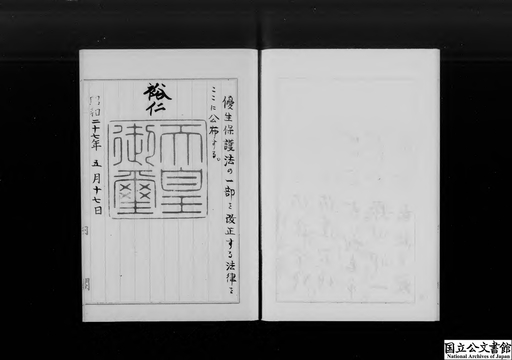 優生保護法の一部を改正する法律を
ここに公布する。
裕仁
天皇
御璽
昭和二十七年五月十七日
国立公文書館
National Archives of Japan